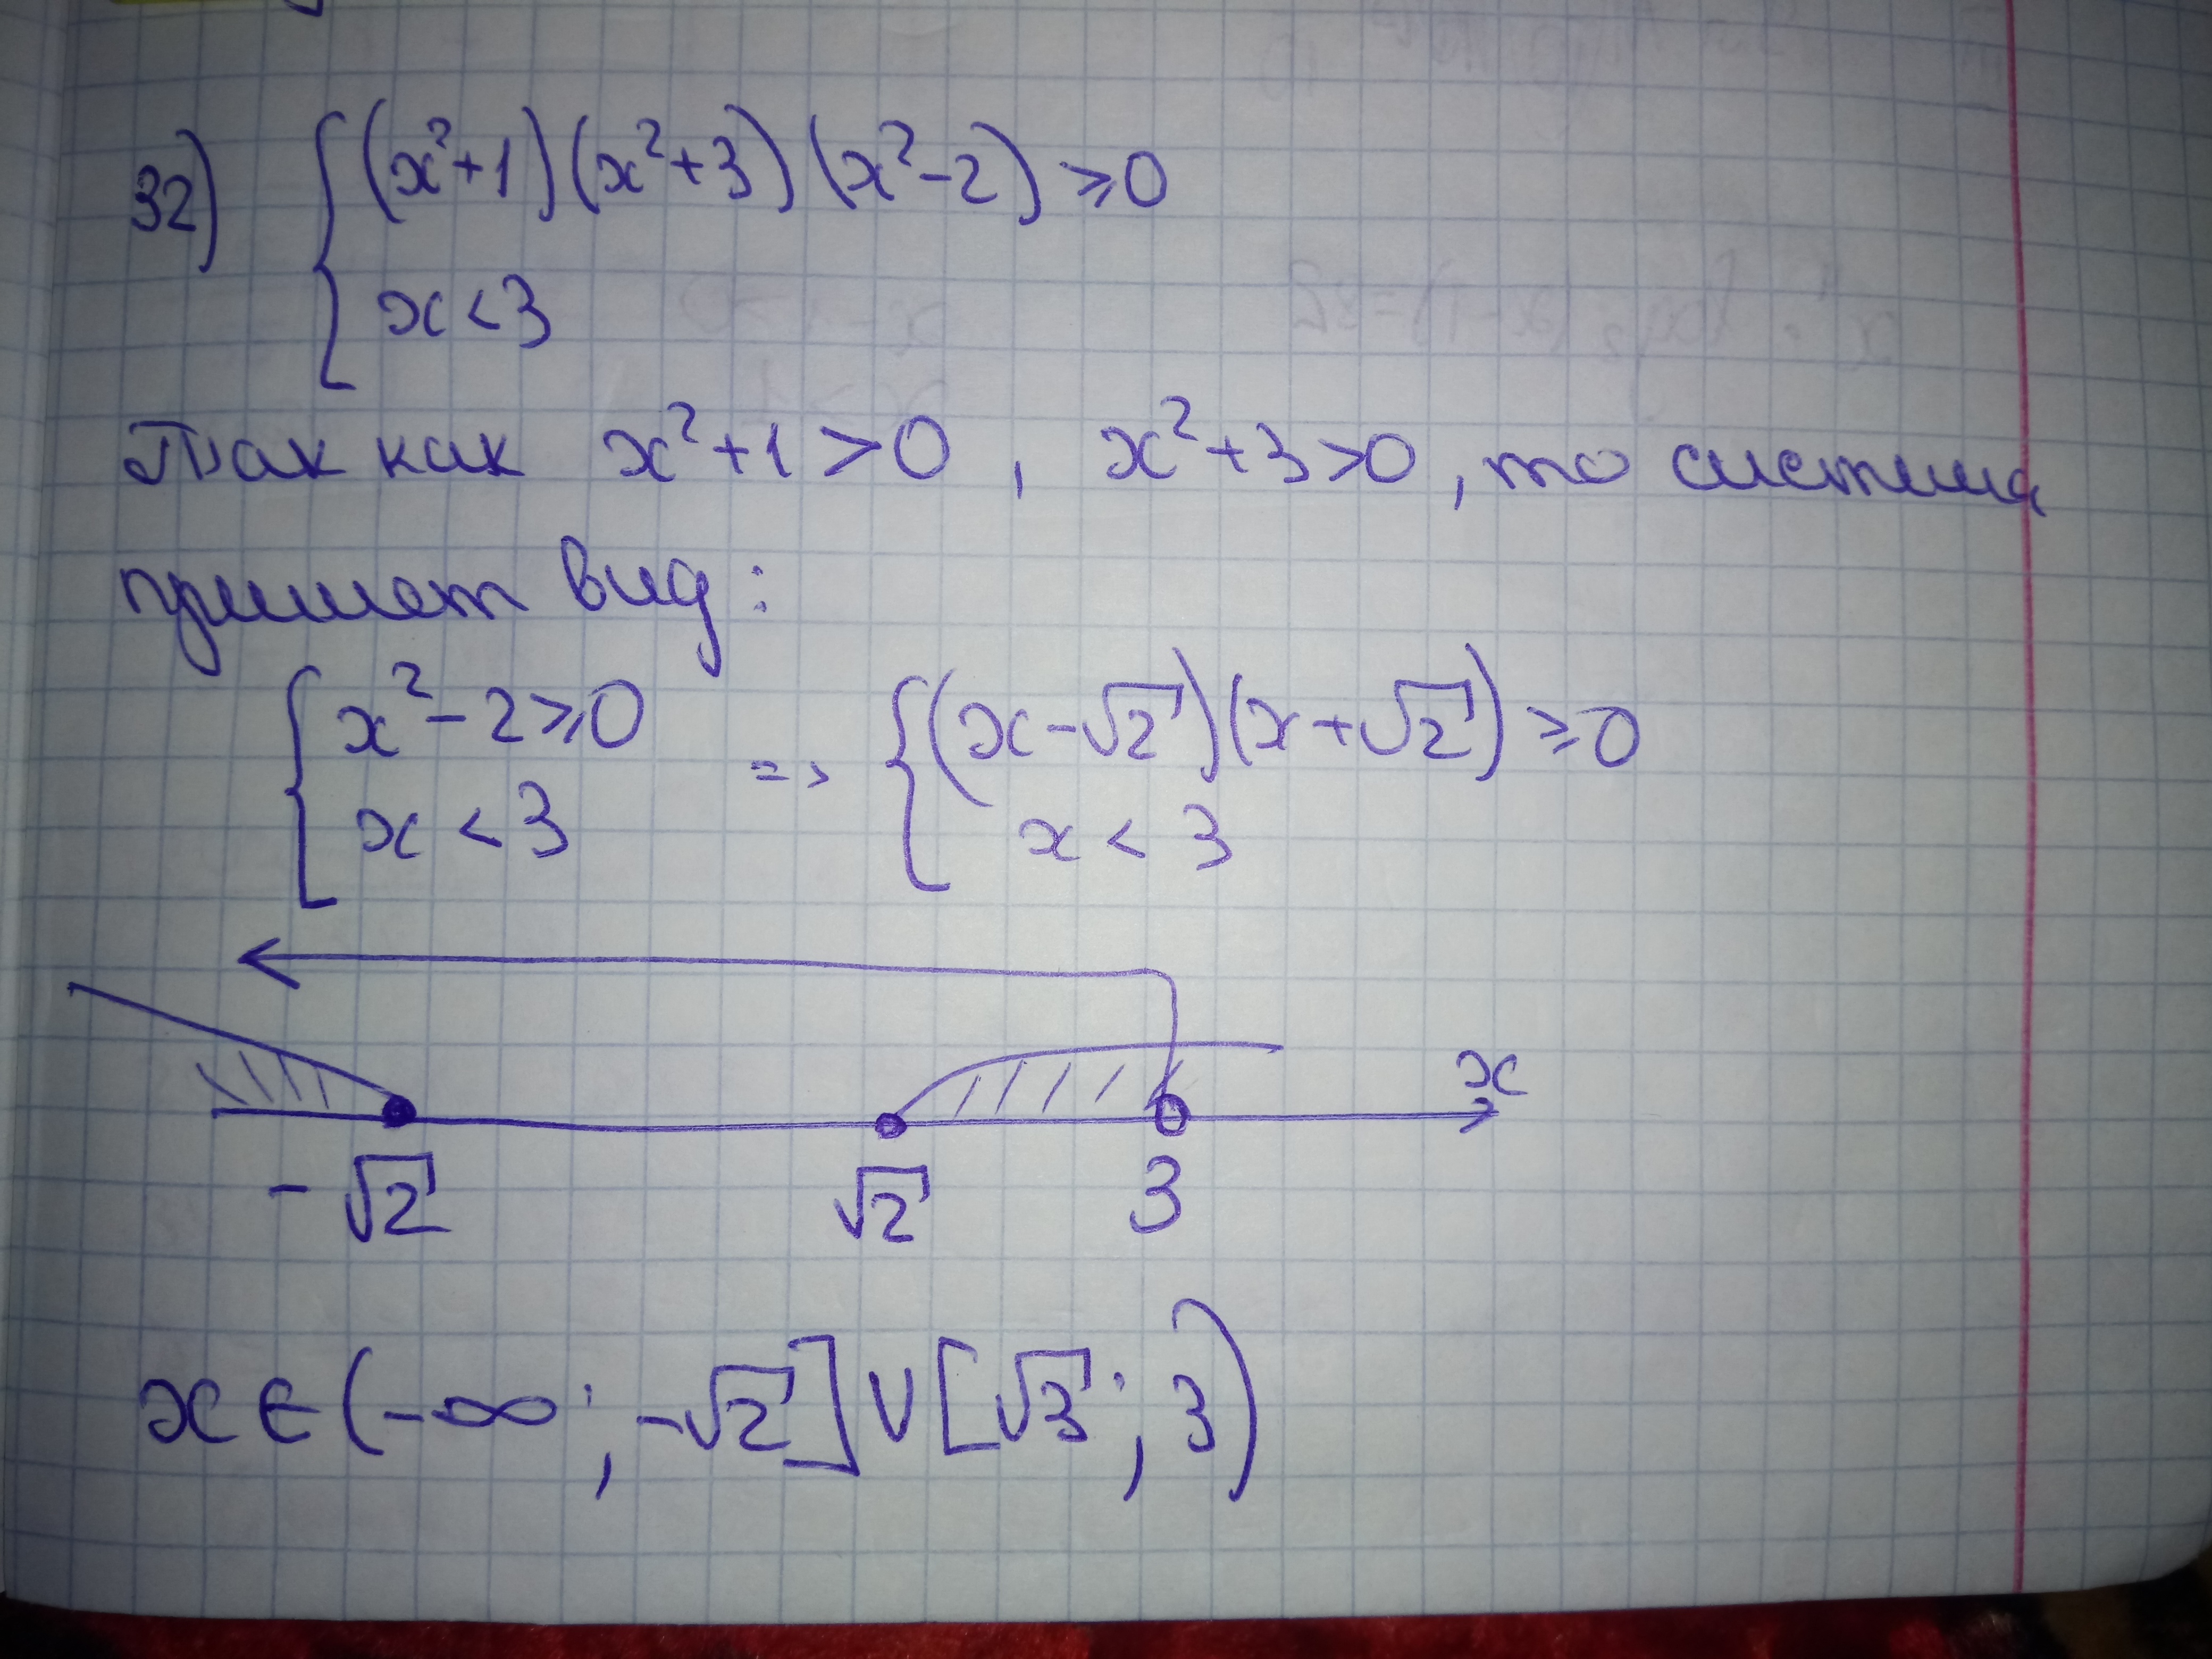 32) { (x²+1)(x²+3)(x²-2) ⩾ 0
x < 3
Так как x²+1 > 0, x²+3 > 0, то система
примет вид:
{ x²-2 ⩾ 0 => { (x-√2)(x+√2) ⩾ 0
x < 3 x < 3
x
-√2 √2 3
x ∈ (-∞; -√2] ∪ [√3; 3)